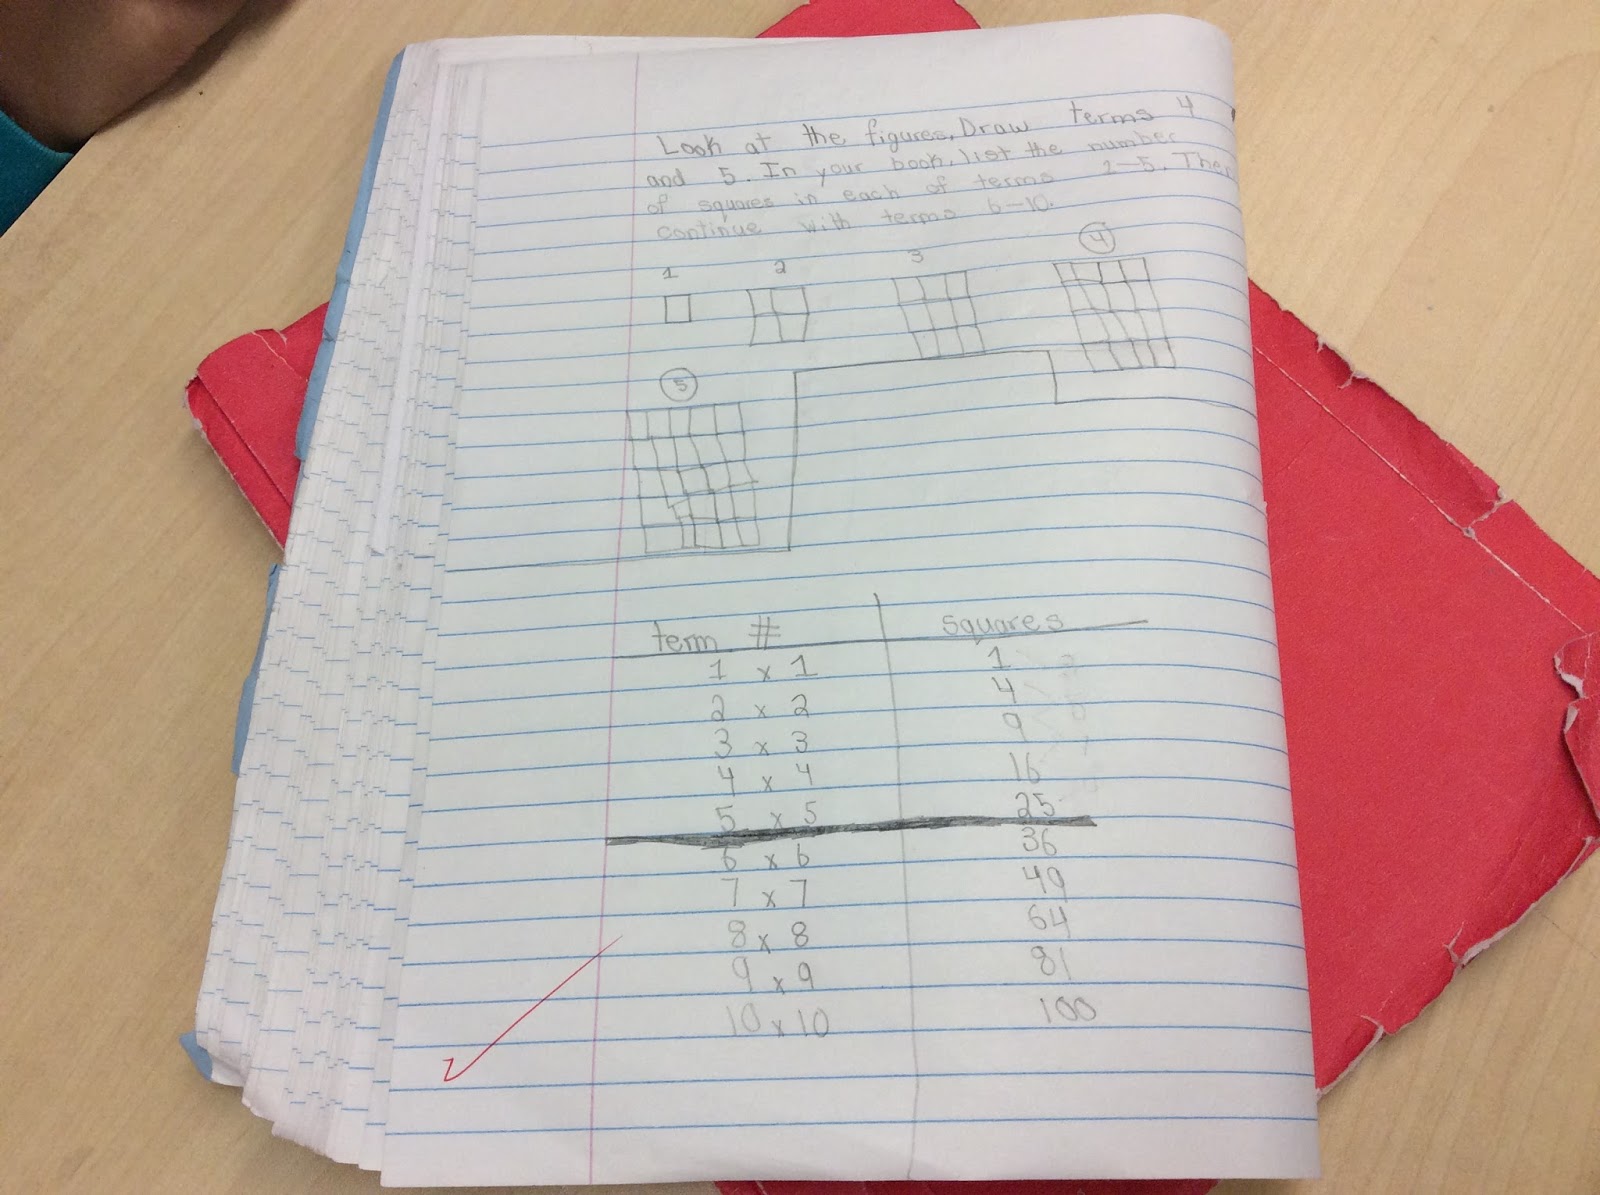 Look at the figures. Draw terms 4
and 5. In your book, list the number
of squares in each of terms 1-5. Then
continue with terms 6-10.
1 2 3 4
5
term # squares
1 x 1 1
2 x 2 4
3 x 3 9
4 x 4 16
5 x 5 25
6 x 6 36
7 x 7 49
8 x 8 64
9 x 9 81
10 x 10 100